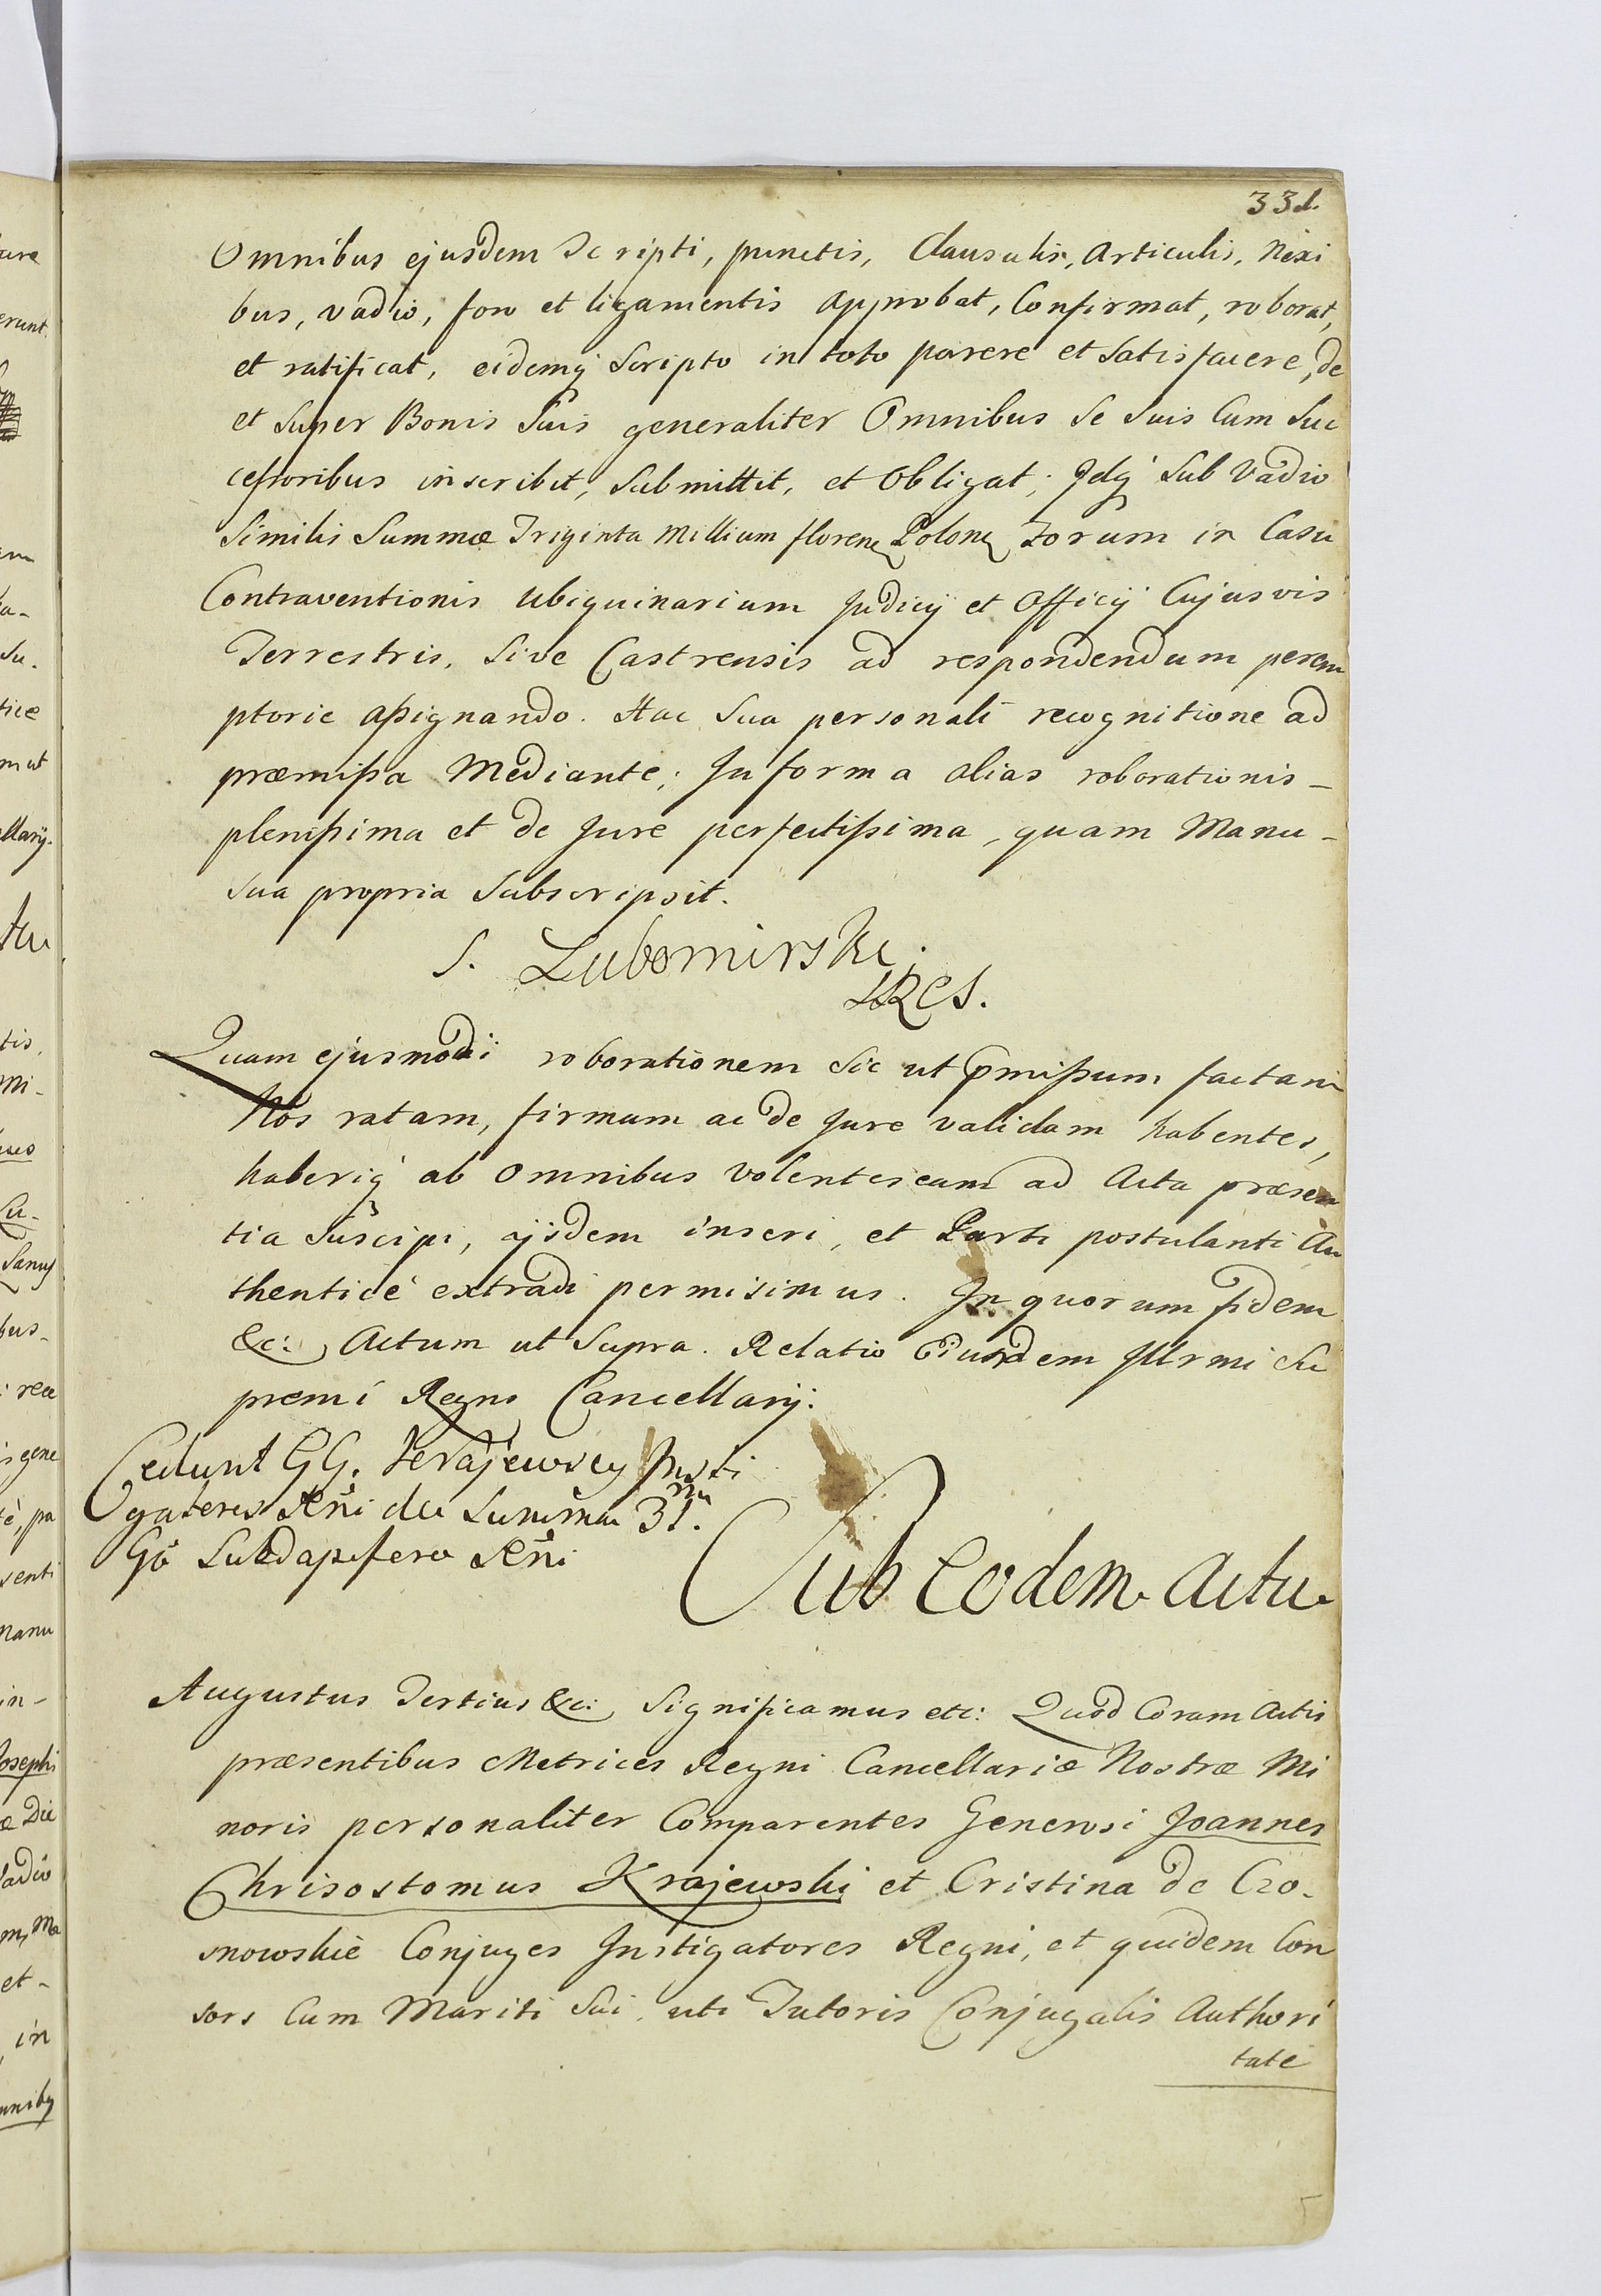 331.
Omnibus ejusdem Scripti, punctis, Clausulis, Articulis, Nexi
bus, vadio, foro et ligamentis approbat, Confirmat, roborat,
et ratificat, eidemq́ Scripto in toto parere et Satisfacere, de
et Super Bonis Suis generaliter Omnibus Se Suis Cum Suc
cessoribus inscribit, Submittit, et Obligat; Idq́ Sub Vadio
Similis Summæ Triginta Millium floren Polon Forum in Casu
Contraventionis Ubiquinarium Judicÿ et Officÿ Cujusvis
Terrestris, Sive Castrensis ad respondendum perem
ptorie assignando. Hac Sua personali recognitione ad
præmissa Mediante; In forma alias roborationis -
plenissima et de Jure perfectissima, quam Manu -
sua propria Subscripsit.
S. Lubomirski.
Quam ejusmodi roborationem Sic ut pmissum factam
Nos ratam, firmam ac de Jure validam habentes,
haberiq́ ab omnibus Volentes eam ad Acta præsen
tia Suscipi, ijsdem inseri, et Parti postulanti Au
thenticè extradi permisimus. In quorum fidem
&c: Actum ut Supra. Relatio Eiusdem Illrmi Su
premi Regni Cancellarÿ:
Cedunt GG. Krajewscy Insti
gatores Rñi de Summa 31.
Gō Subdapifero Rñi
Sub Eodem Actu
Augustus Tertius &c: Significamus etc: Quod Coram Actis
præsentibus Metrices Regni Cancellariæ Nostræ Mi
noris personaliter Comparentes Generosi Joannes
Chrisostomus Krajewski et Cristina de Czo-
snowskie Conjuges Instigatores Regni, et quidem Con
sors Cum Mariti Sui, uti Tutoris Conjugalis Authori
tate